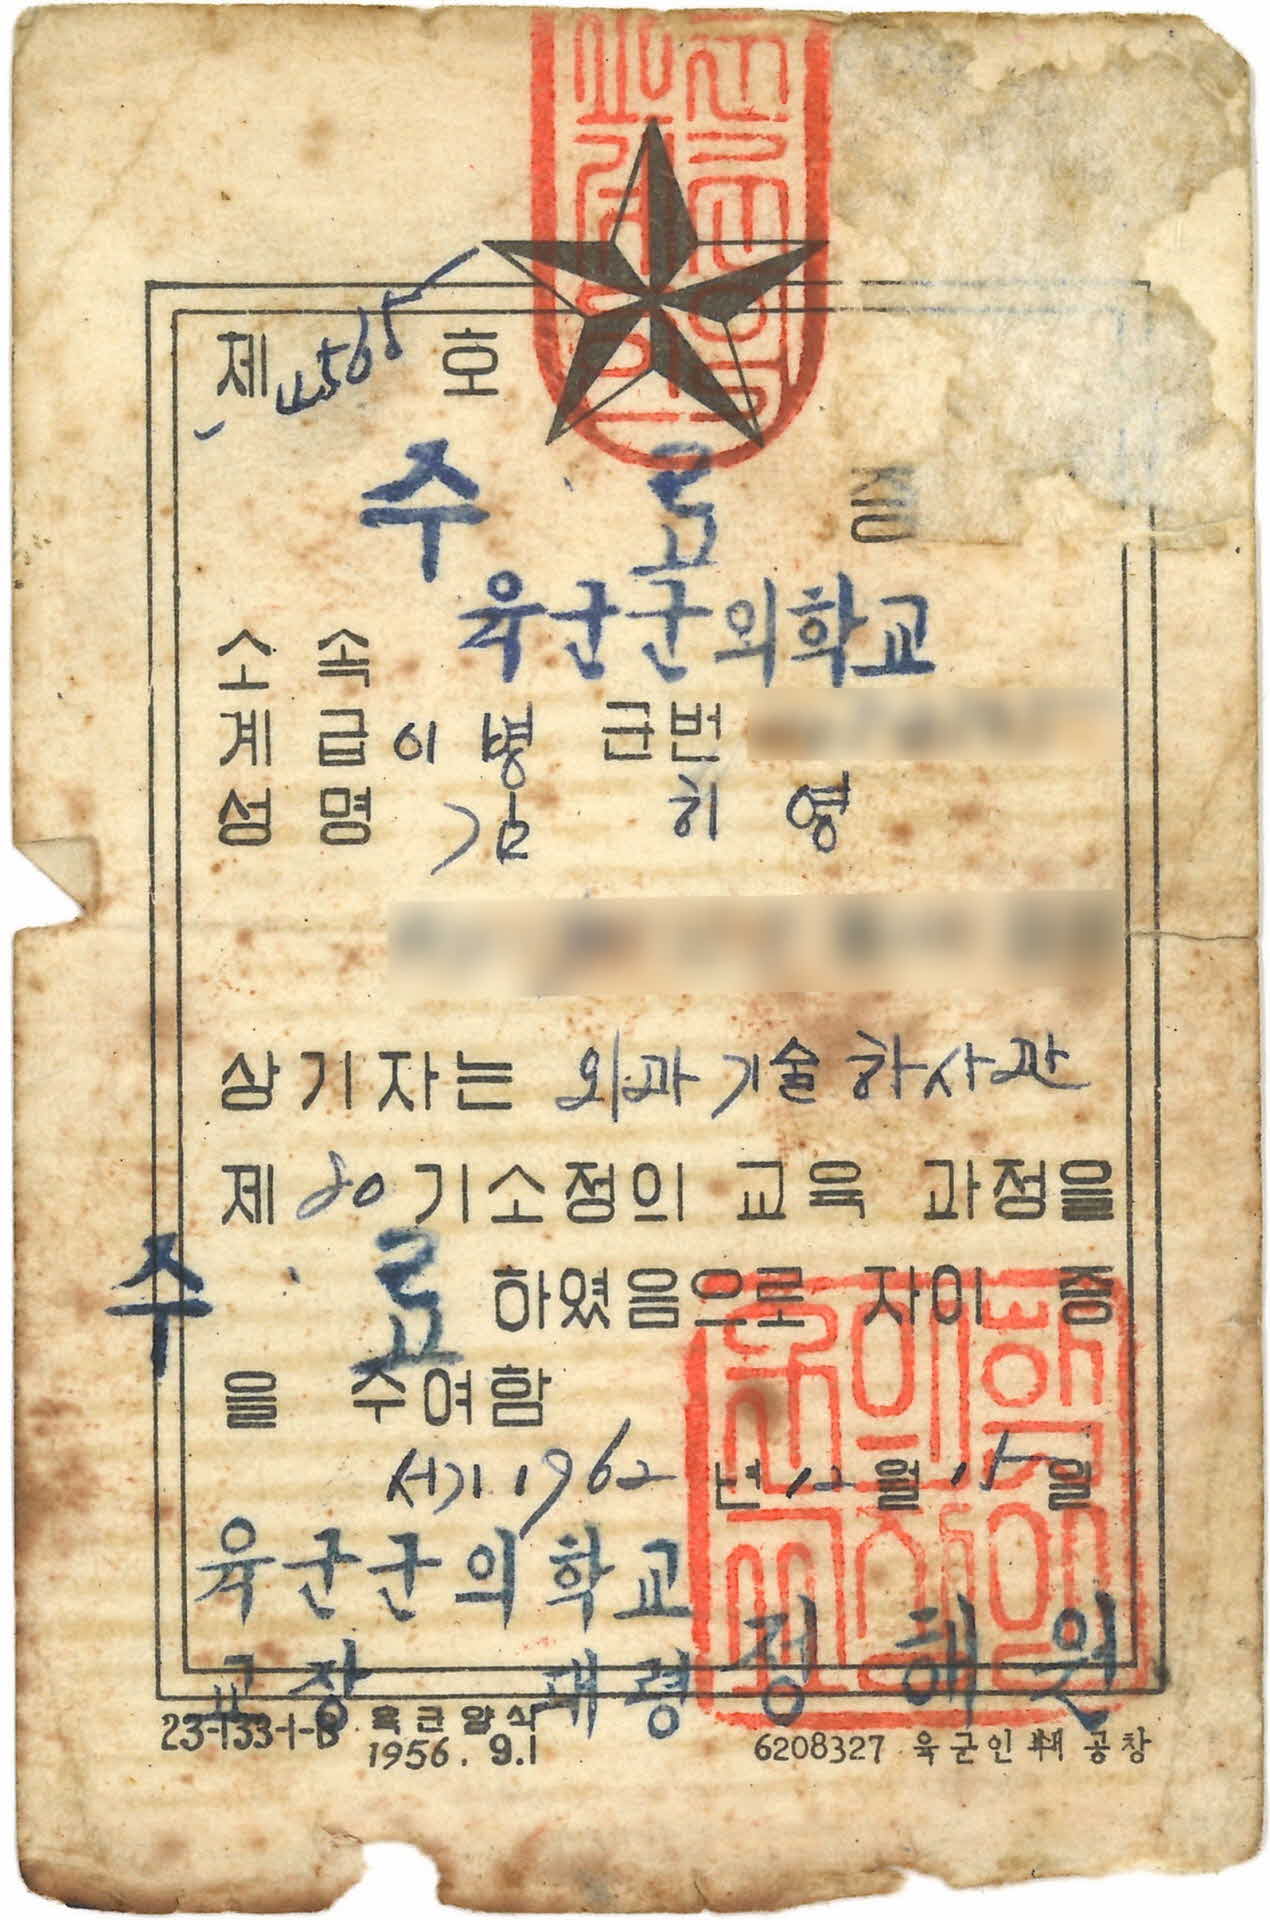 제 4565 호
수 료 증
소속 육군군의학교
계급 이병 군번
성명 김희영
상기자는 외과기술하사관
제 80 기소정의 교육 과정을
수 료 하였음으로 자이 증
을 수여함
서기 1962 년 12 월 15 일
육군군의학교
교장 대령 정해원
23-133-1-B 육군양식 1956.9.1
6208327 육군인쇄공창